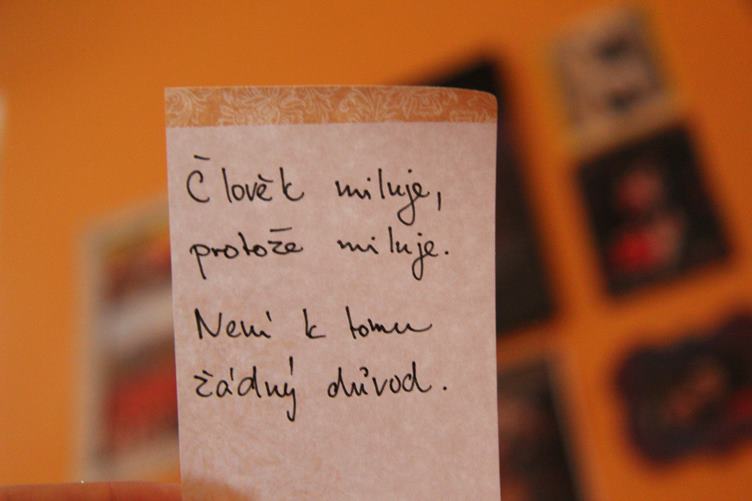 Člověk miluje,
protože miluje.
Není k tomu
žádný důvod.